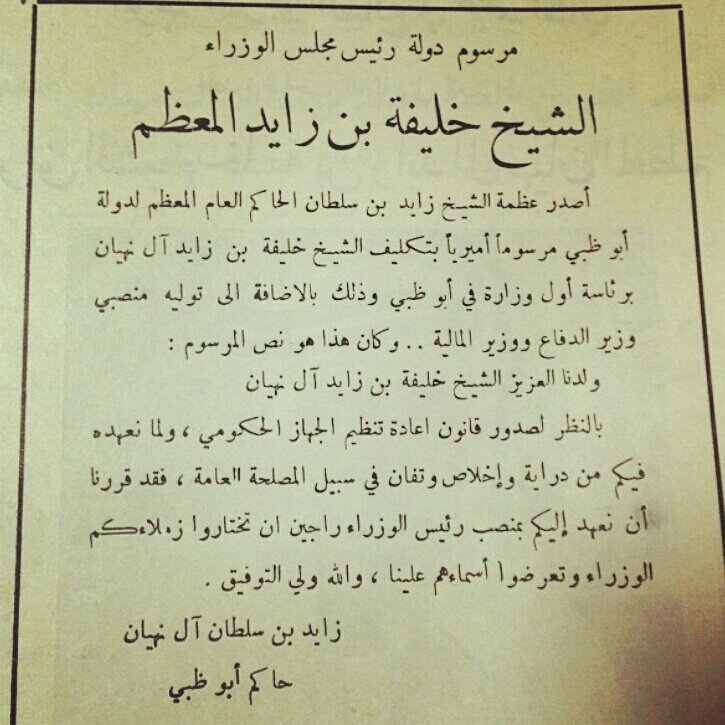 مرسوم دولة رئيس مجلس الوزراء
الشيخ خليفة بن زايد المعظم
أصدر عظمة الشيخ زايد بن سلطان الحاكم العام المعظم لدولة
أبو ظبي مرسوماً أميرياً بتكليف الشيخ خليفة بن زايد آل نهيان
برئاسة أول وزارة في أبو ظبي وذلك بالاضافة الى توليه منصبي
وزير الدفاع ووزير المالية .. وكان هذا هو نص المرسوم :
ولدنا العزيز الشيخ خليفة بن زايد آل نهيان
بالنظر لصدور قانون اعادة تنظيم الجهاز الحكومي ، ولما نعهده
فيكم من دراية وإخلاص وتفان في سبيل المصلحة العامة ، فقد قررنا
أن نعهد إليكم بمنصب رئيس الوزراء راجين ان تختاروا زملاءكم
الوزراء وتعرضوا أسماءهم علينا ، والله ولي التوفيق .
زايد بن سلطان آل نهيان
حاكم أبو ظبي